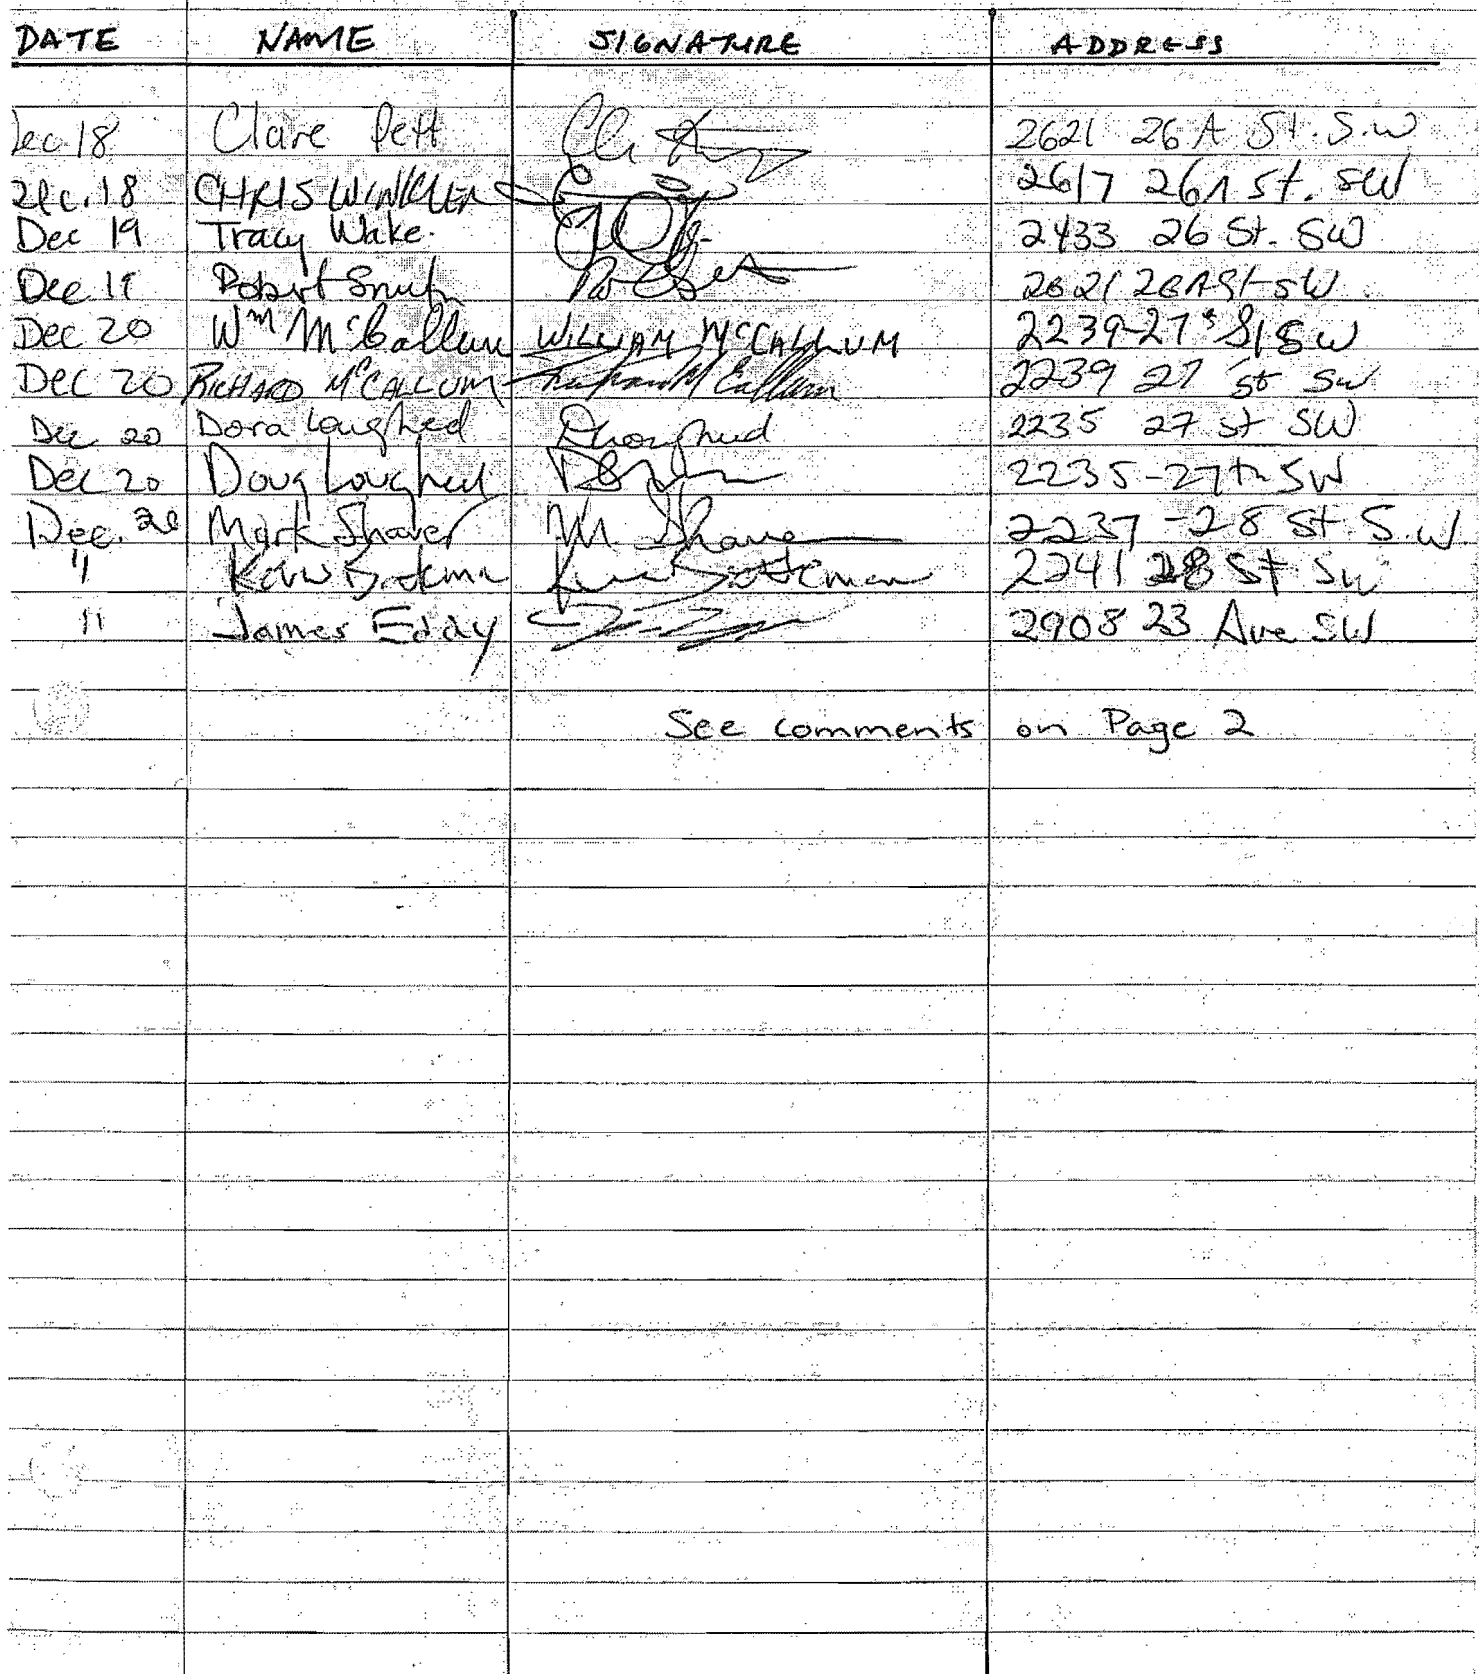 DATE NAME SIGNATURE ADDRESS
Dec 18 Clare Pett 2621 26A St. S.W
Dec. 18 CHRIS WINKLER 2617 26A St. SW
Dec 19 Tracy Wake. 2433 26 St. SW
Dec 19 Robert Smith 2621 26A St SW
Dec 20 Wm McCallum WILLIAM MCCALLUM 2239-27 St SW
Dec 20 RICHARD McCALLUM Richard McCallum 2239 27 St SW
Dec 20 Dora Lougheed DLougheed 2235 27 St SW
Dec 20 Doug Lougheed 2235-27th SW
Dec. 20 Mark Shaver M. Shaver 2237-28 St. S.W
" 2241 28 St SW
" James Eddy 2908 23 Ave SW
See comments on Page 2